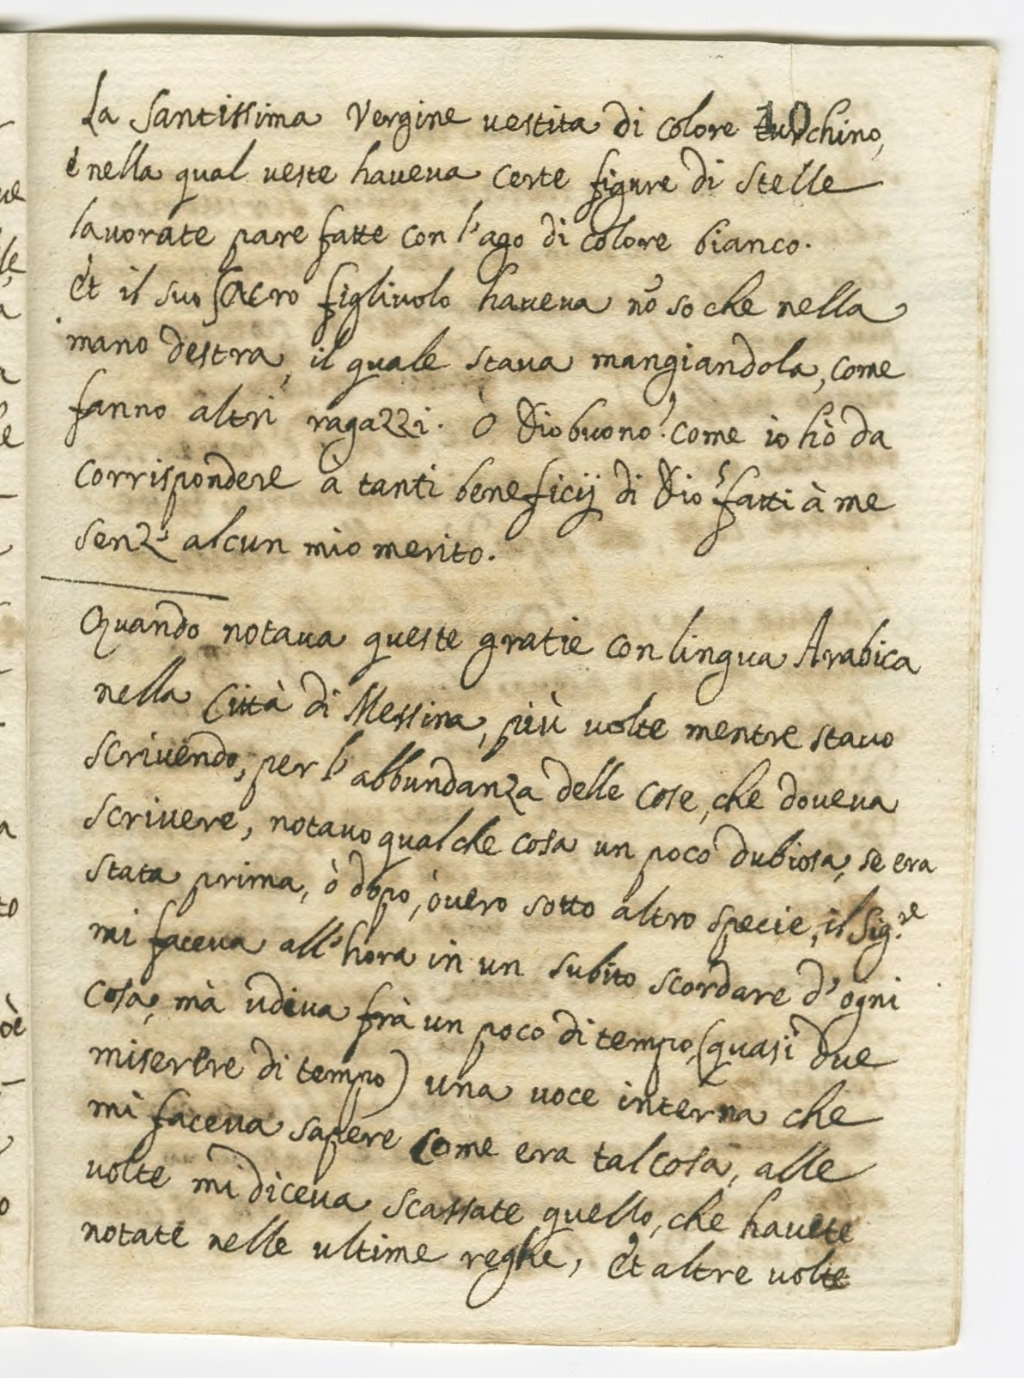 10
La Santissima Vergine vestita di colore turchino,
è nella qual veste haveva certe figure di Stelle
lavorate pare fatte con l'ago di colore bianco.
Et il suo sacro figlivolo haveva nõ so che nella
mano destra, il quale stava mangiandola, come
fanno altri ragazzi. Ò Dio buono! come io hò da
corrispondere à tanti beneficij di Dio fatti à me
senz' alcun mio merito.
Quando notava queste gratie con lingua Arabica
nella Città di Messina, più volte mentre stavo
scrivendo, per l'abbundanza delle cose, che doveva
scrivere, notavo qualche cosa un poco dubiosa, se era
stata prima, ò dopo, òvero sotto altro specie, il Sig.re
mi faceva all'hora in un subito scordare d'ogni
cosa, mà udiva frà un poco di tempo, (quasi due
miserere di tempo) una voce interna che
mi faceva sapere come era tal cosa, alle
volte mi diceva scassate quello, che havete
notate nelle ultime reghe, Et altre volte